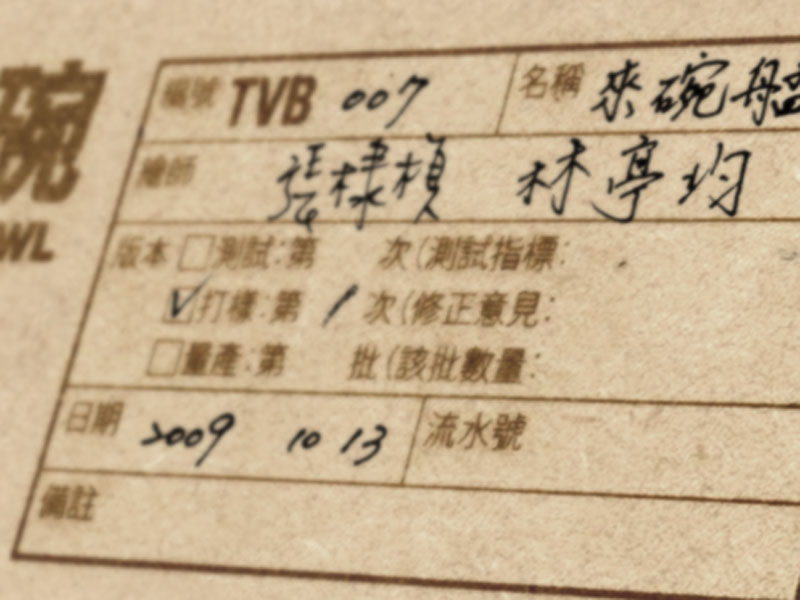 碗
WL
編號 TVB 007 名稱 來碗盤
繪師 張棣楨 林亭均
版本 □測試:第 次(測試指標:
☑打樣:第 1 次(修正意見:
□量產:第 批(該批數量:
日期 2009 10 13 流水號
備註